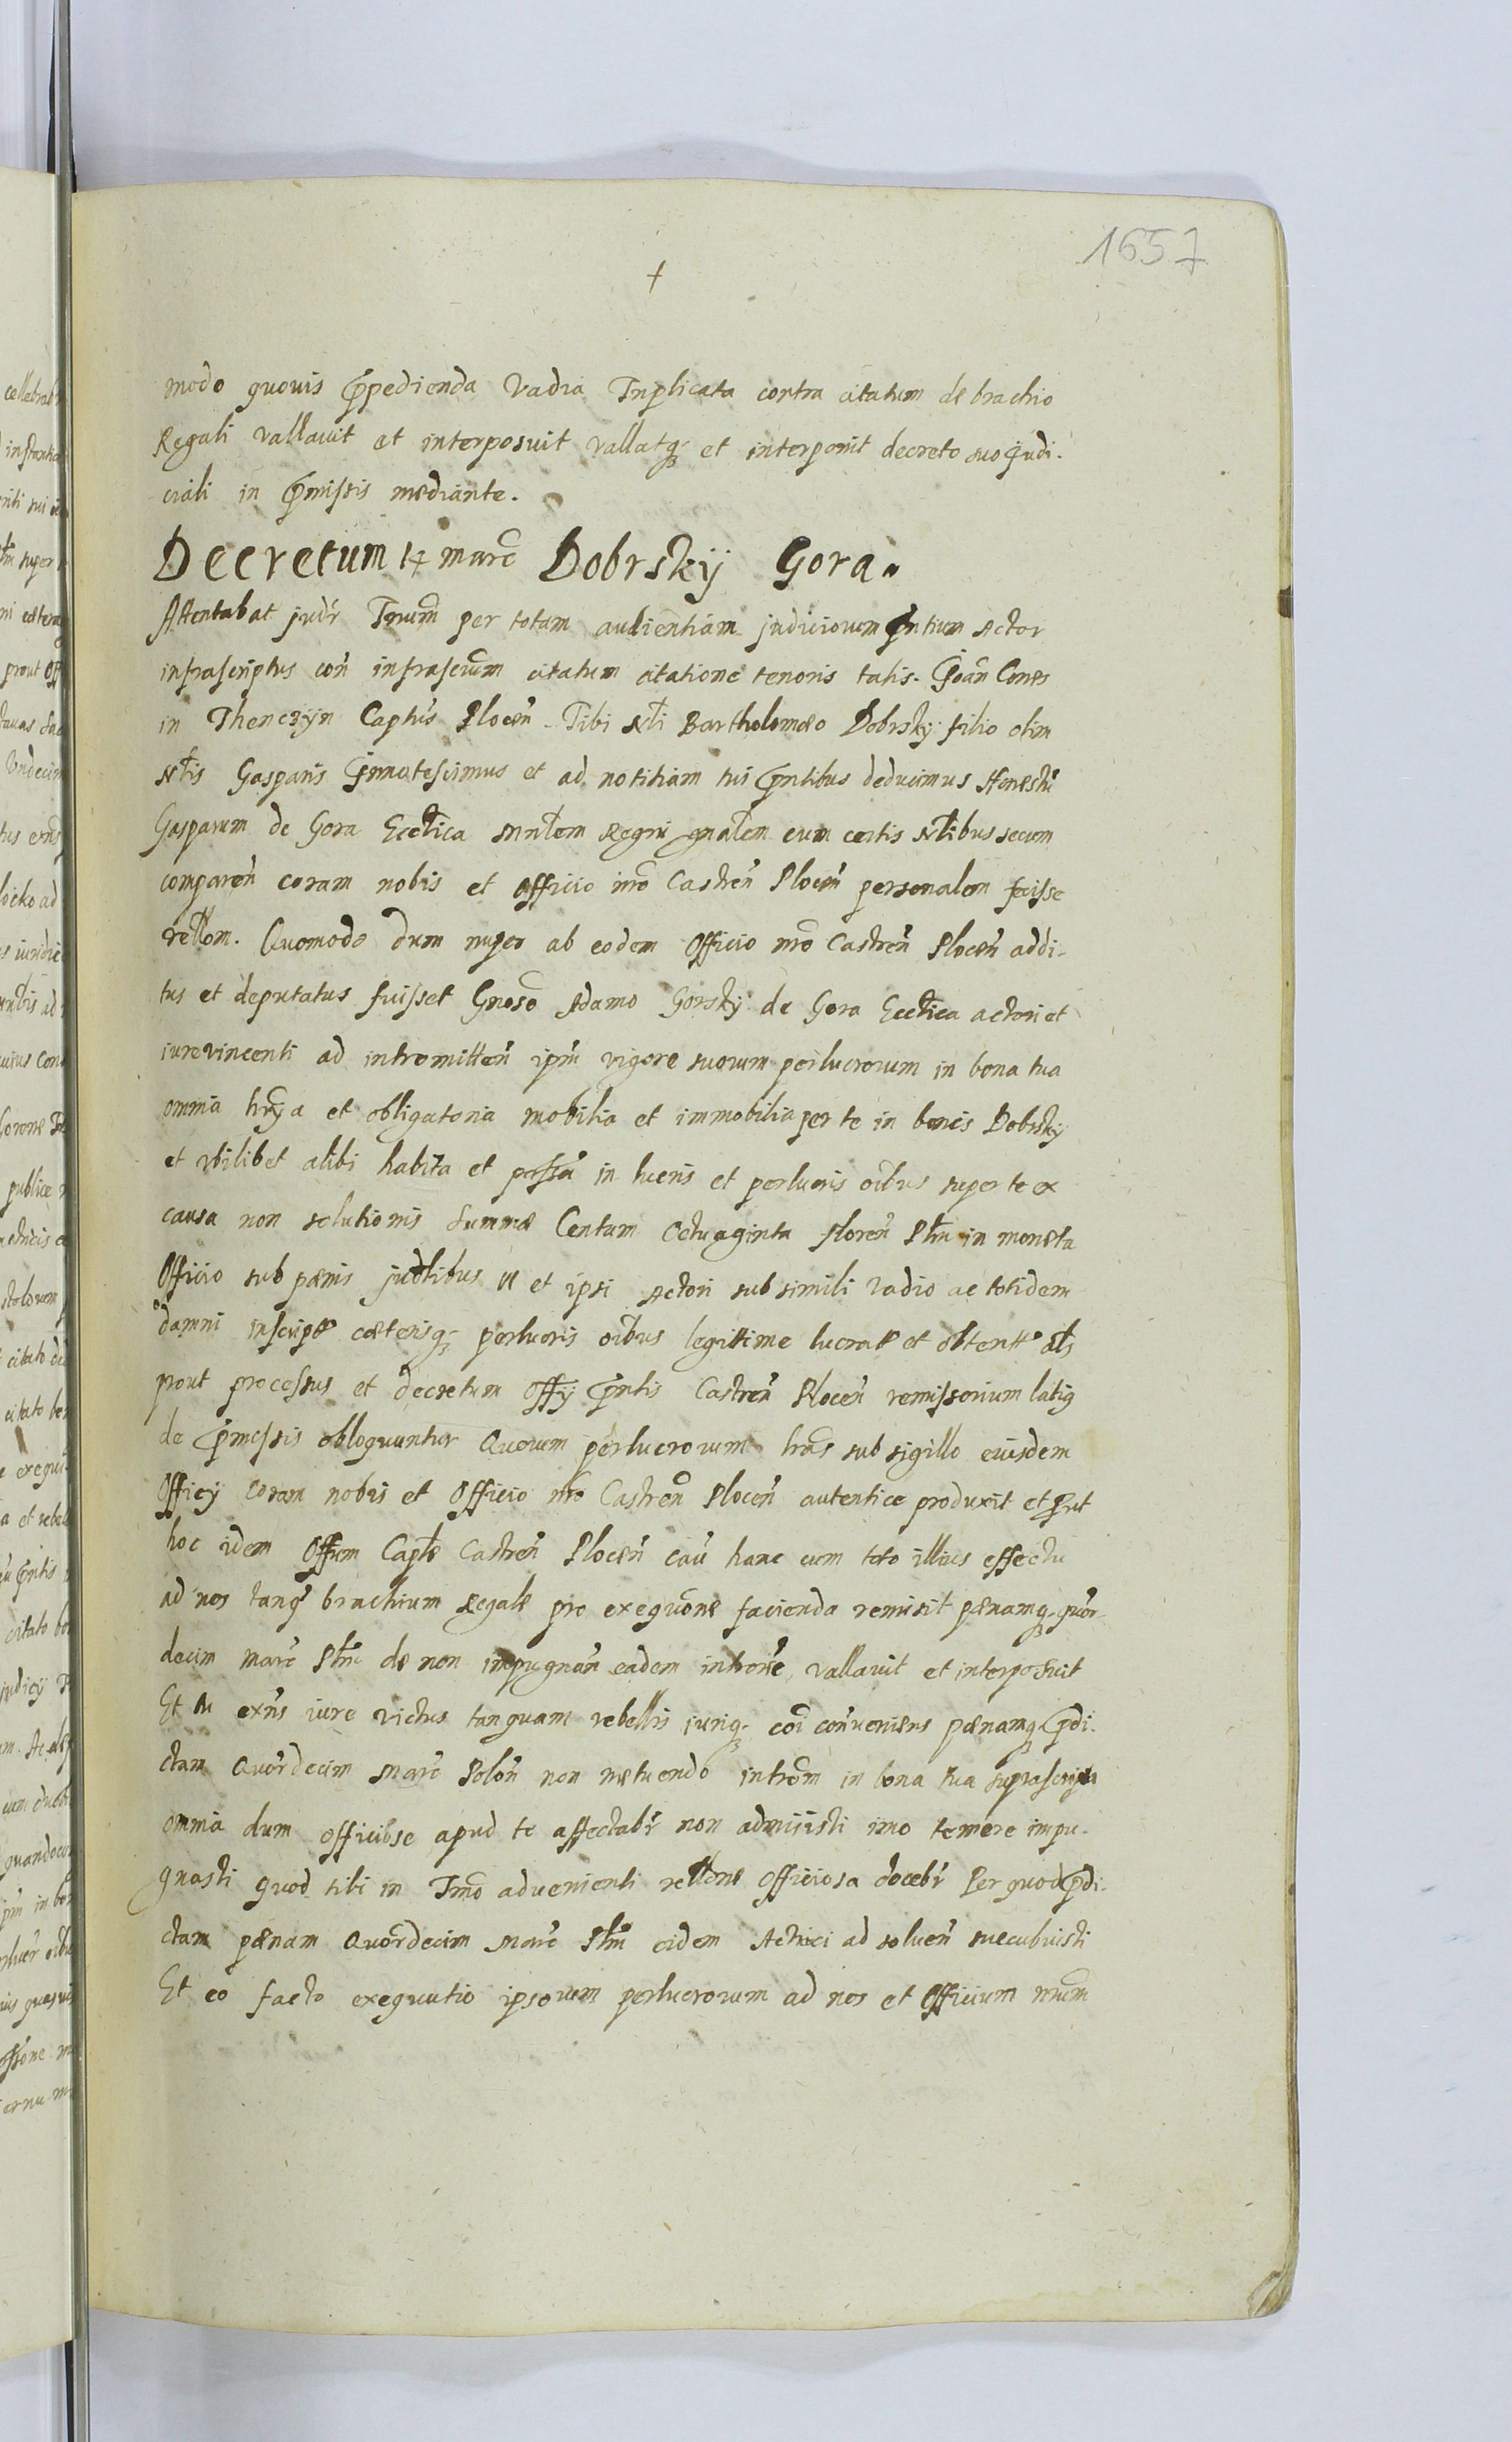 1657
+
modo quouis p̄pedienda Vadia Triplicata contra citatum de brachio
Regali vallauit et interposuit vallatq; et interponit decreto suo judi-
ciali in p̄missis mediante.
Decretum 14 marc̄ Dobrskÿ Gora.
Attentabat judr̄ Trnum̄ per totam audientiam judiciorum p̄ntium Actor
infrascriptus con̄ infrascrūm citatum citatione tenoris talis. Joan̄ Comes
in Thenczÿn Captūs Plocen̄ Tibi Nl̄i Bartholomæo Dobrskÿ filio olim
Nl̄is Gasparis Jnnotescimus et ad notitiam tui p̄ntibus deducimus Honestū
Gasparum de Gora Eccl̄ica Mnl̄em Regni gnal̄em cum certis Nl̄ibus secum
comparen̄ coram nobis et Officio nr̄o Castren̄ Plocen̄ personalem fecisse
rel̄lom. Quomodo dum nuper ab eodem Officio nr̄o Castren̄ Plocen̄ addi-
tus et deputatus fuisset Gnoso Adamo Gorskÿ de Gora Eccl̄ica actori et
iurevincenti ad intromitten̄ ipm̄ vigore suorum perlucrorum in bona tua
omnia hr̄ÿa et obligatoria mobilia et immobilia per te in bonis Dobrskÿ
et vbilibet alibi habita et possā in lucris et perlucris oībus super te ex
causa non solutionis Summæ Centum Octuaginta floren̄ Pln̄ in moneta
Officio sub pænis judl̄ibus vl et ipsi Actori sub simili vadio ac totidem
damni inscrip̄t cæterisq; perlucris oībus legittime lucrat̄ et obtent̄ al̄s
prout processus et decretum Offÿ p̄ntis Castren̄ Plocen̄ remissorium latiq
de p̄missis obloquuntur Quorum perlucrorum lr̄as sub sigillo eiusdem
Officÿ coram nobis et Officio nr̄o Castren̄ Plocen̄ autentice produxit et put
hoc idem Offm̄ Captl̄e Castren̄ Plocen̄ cāu hanc cum toto illius effectu
ad nos tanq̄ brachium Regale pro exequōne facienda remisit pænamq; quōr-
decim marc̄ Pln̄ de non impugnan̄ eadem intrōne vallauit et interposuit
Et tu exn̄s iure victus tanquam rebellis iuriq; coī conueniens pænamq; p̄di-
ctam Quōrdecim Marc̄ Polon̄ non metuendo intrōm in bona tua suprascripta
omnia dum officiose apud te affectabr̄ non admisisti imo temere impu-
gnasti quod tibi in Trno advenienti rel̄lone Officiosa docebr̄ Per quod p̄di-
ctam pænam Quōrdecim Marc̄ Pln̄ eidem Actrici ad soluen̄ succubuisti
Et eo facto exequutio ipsorum perlucrorum ad nos et Officium nrum̄